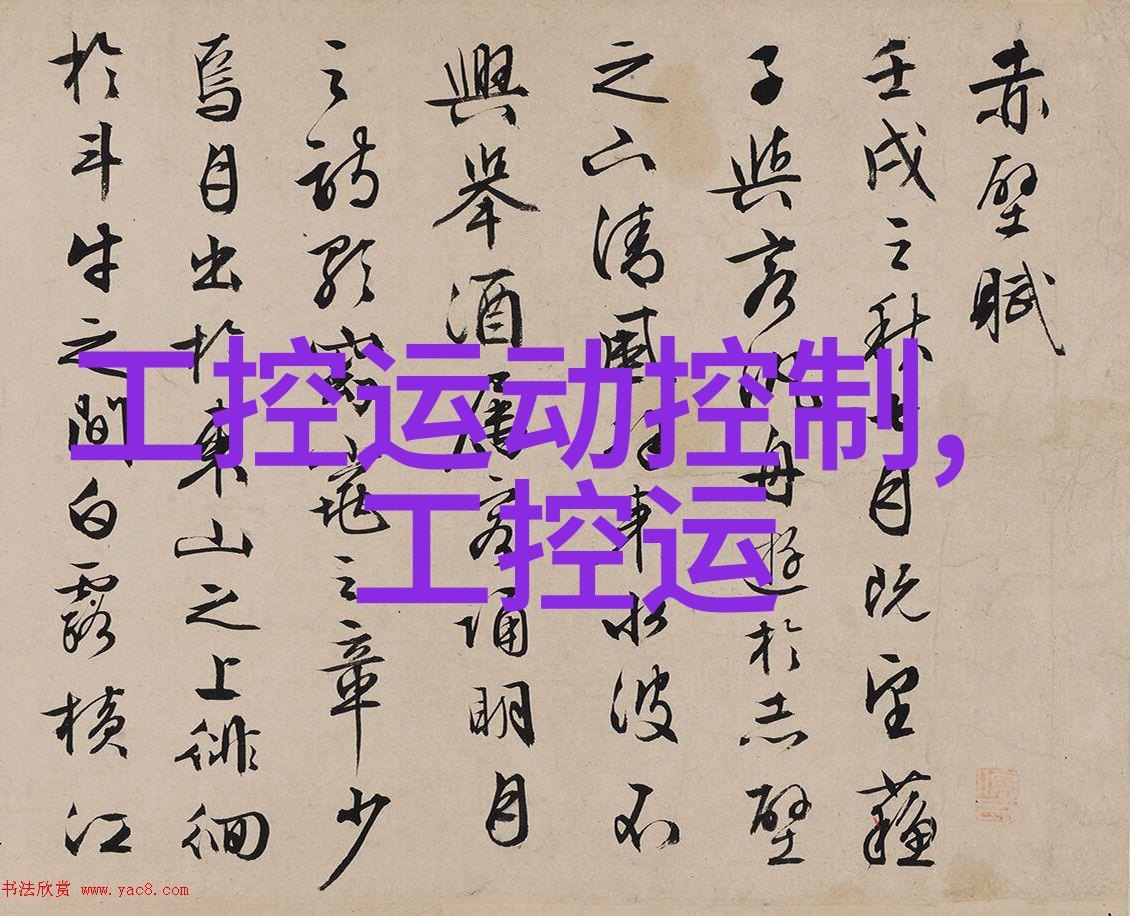 赤壁賦
壬戌之秋七月既望蘓
子與客泛舟遊於赤壁
之下清風徐來水波不
興舉酒屬客誦明月
之詩歌窈窕之章少
焉月出於東山之上徘徊
於斗牛之間白露橫江
工控运动控制,
工控运
书法欣赏 www.yac8.com